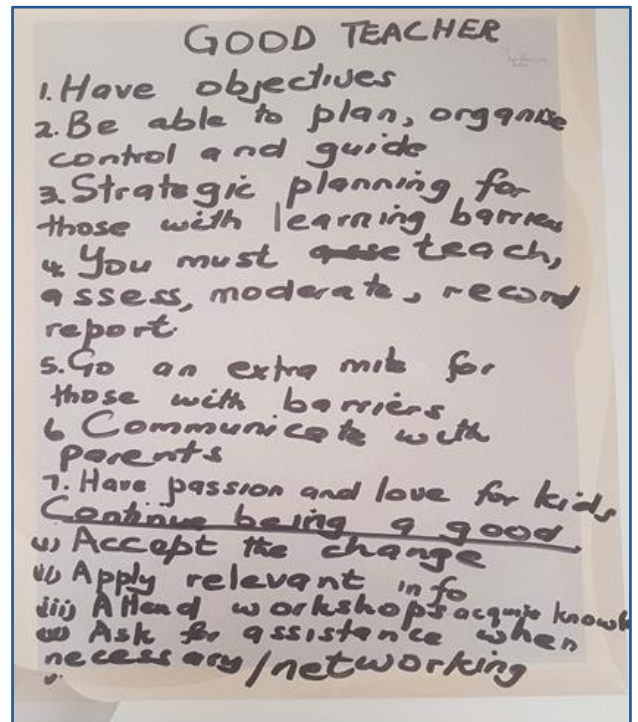 GOOD TEACHER
1. Have objectives
2. Be able to plan, organise
control and guide
3. Strategic planning for
those with learning barriers
4. You must teach,
assess, moderate, record
report.
5. Go an extra mile for
those with barriers
6 Communicate with
parents
7. Have passion and love for kids
Continue being a good
i) Accept the change
ii) Apply relevant info
iii) Attend workshops acquire
iv) Ask for assistance when
necessary/networking
v.